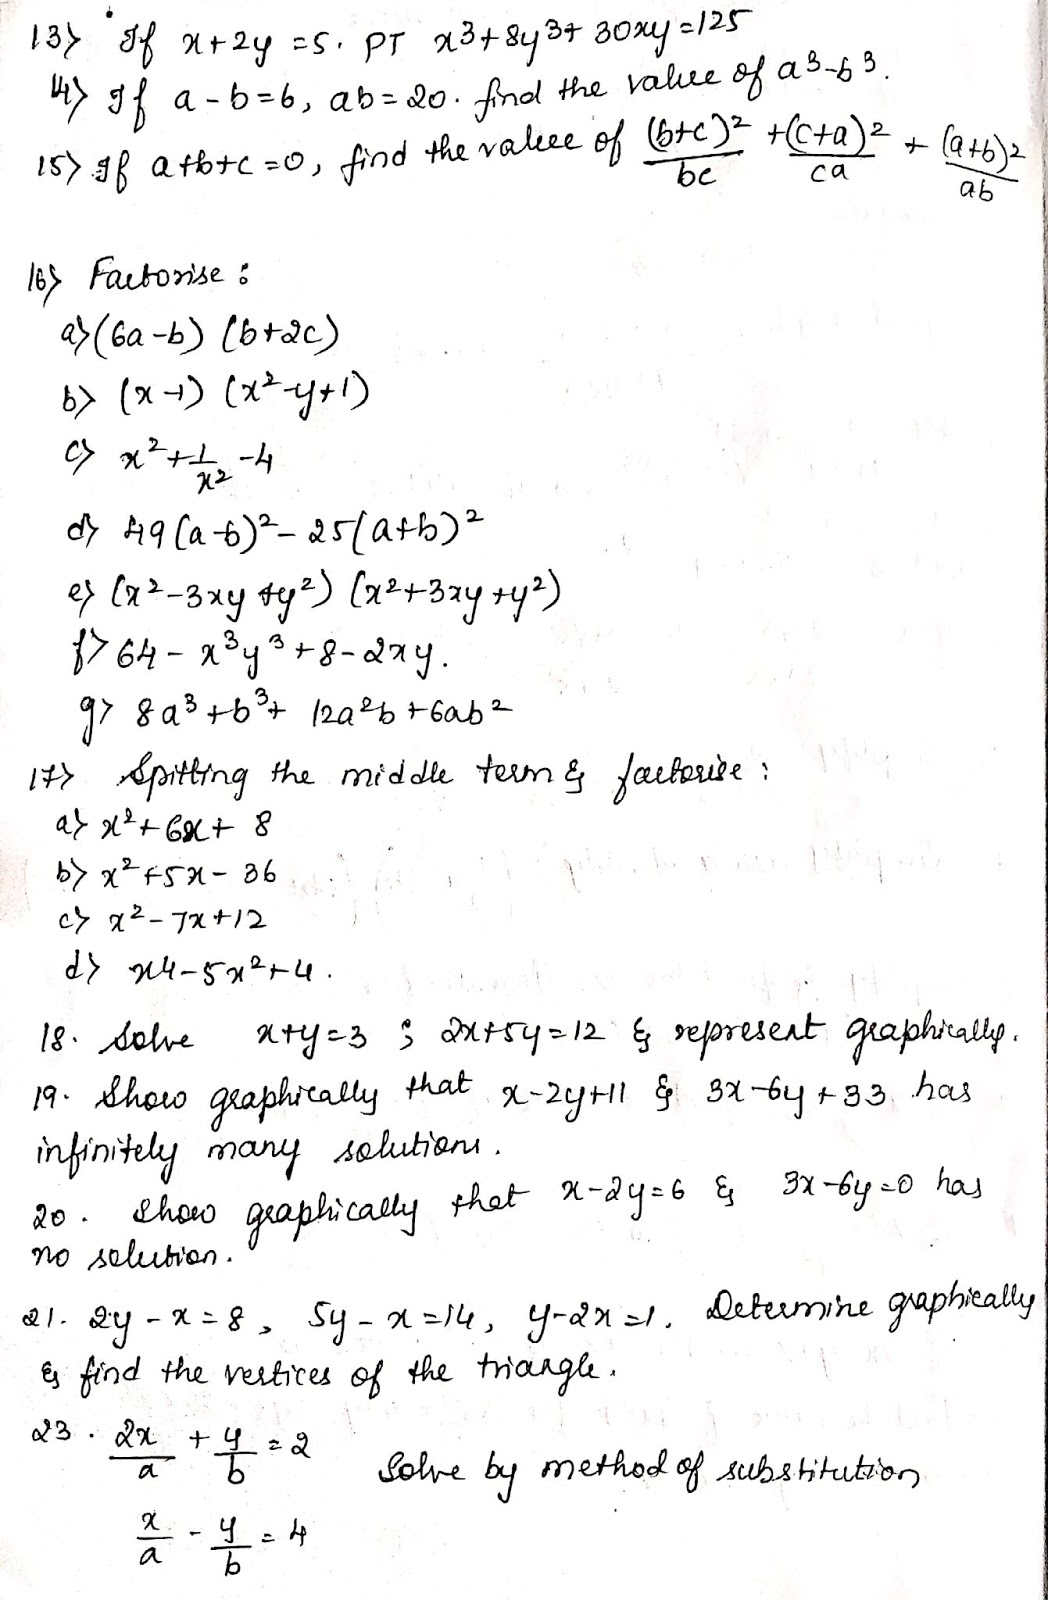 13) If x+2y=5. PT x³+8y³+30xy=125
14) If a-b=6, ab=20. find the value of a³-b³.
15) If a+b+c=0, find the value of (b+c)²/bc + (c+a)²/ca + (a+b)²/ab
16) Factorise:
a) (6a-b) (b+2c)
b) (x-1) (x²-y+1)
c) x²+1/x²-4
d) 49(a-b)²-25(a+b)²
e) (x²-3xy+y²) (x²+3xy+y²)
f) 64-x³y³+8-2xy.
g) 8a³+b³+12a²b+6ab²
17) Spitting the middle term & factorise:
a) x²+6x+8
b) x²+5x-36
c) x²-7x+12
d) x4-5x²+4.
18. Solve x+y=3 ; 2x+5y=12 & represent graphically.
19. Show graphically that x-2y+11 & 3x-6y+33 has
infinitely many solutions.
20. Show graphically that x-2y=6 & 3x-6y=0 has
no solution.
21. 2y-x=8, 5y-x=14, y-2x=1. Determine graphically
& find the vertices of the triangle.
23. 2x/a + y/b = 2
Solve by method of substitution
x/a - y/b = 4